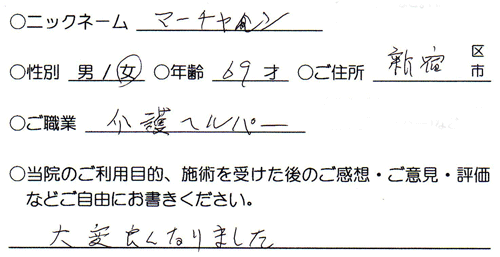 ○ニックネーム マーチャン
○性別 男/女 ○年齢 69才 ○ご住所 新宿 区市
○ご職業 介護ヘルパー
○当院のご利用目的、施術を受けた後のご感想・ご意見・評価
などご自由にお書きください。
大変良くなりました